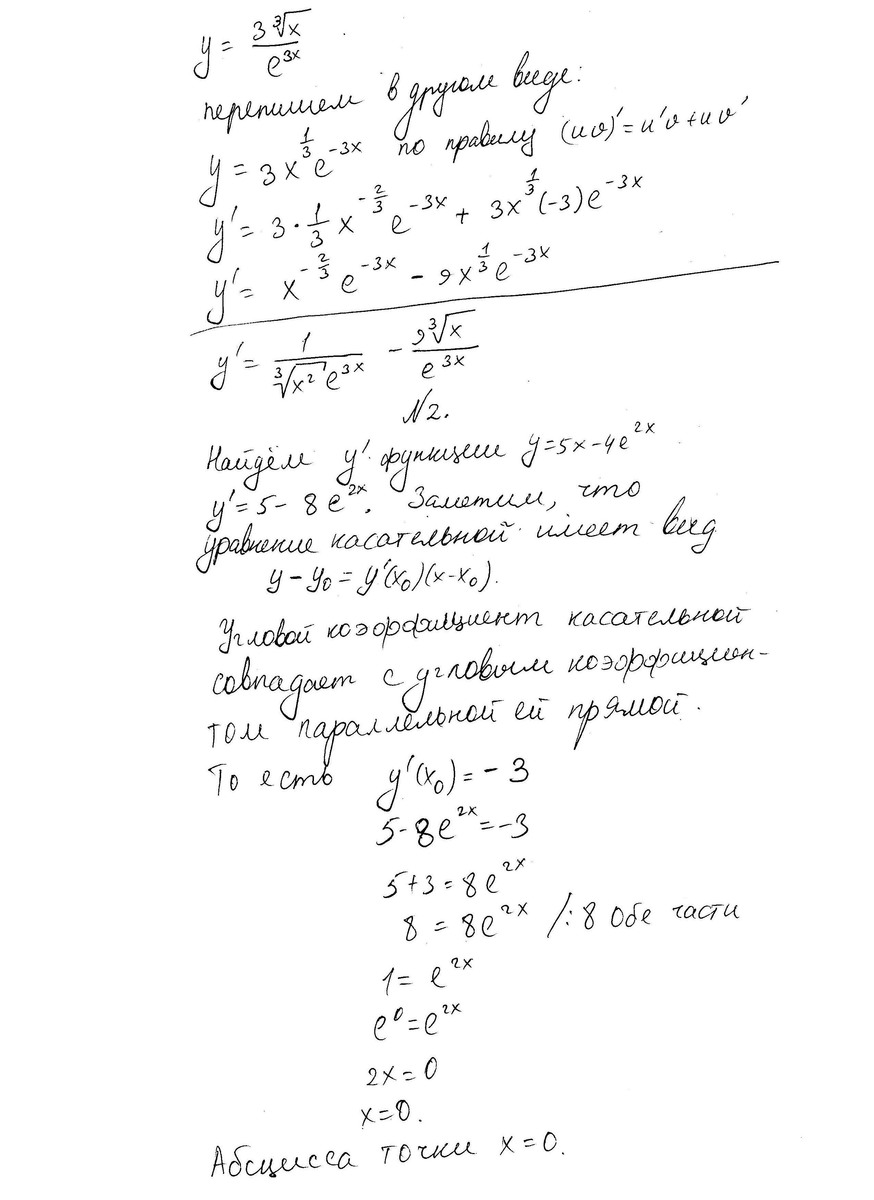 y = 3∛x / e^{3x}
перепишем в другом виде:
y = 3x^{1/3} e^{-3x} по правилу (uv)' = u'v + uv'
y' = 3 · 1/3 x^{-2/3} e^{-3x} + 3x^{1/3} (-3)e^{-3x}
y' = x^{-2/3} e^{-3x} - 9x^{1/3} e^{-3x}
y' = 1 / ∛x² e^{3x} - 9∛x / e^{3x}
N2.
Найдём y' функции y=5x-4e^{2x}
y' = 5 - 8e^{2x}. Заметим, что
уравнение касательной имеет вид
y - y₀ = y'(x₀)(x-x₀).
Угловой коэффициент касательной
совпадает с угловым коэффициен-
том параллельной ей прямой.
То есть y'(x₀) = -3
5-8e^{2x} = -3
5+3 = 8e^{2x}
8 = 8e^{2x} /:8 обе части
1 = e^{2x}
e⁰ = e^{2x}
2x = 0
x = 0.
Абсцисса точки x = 0.